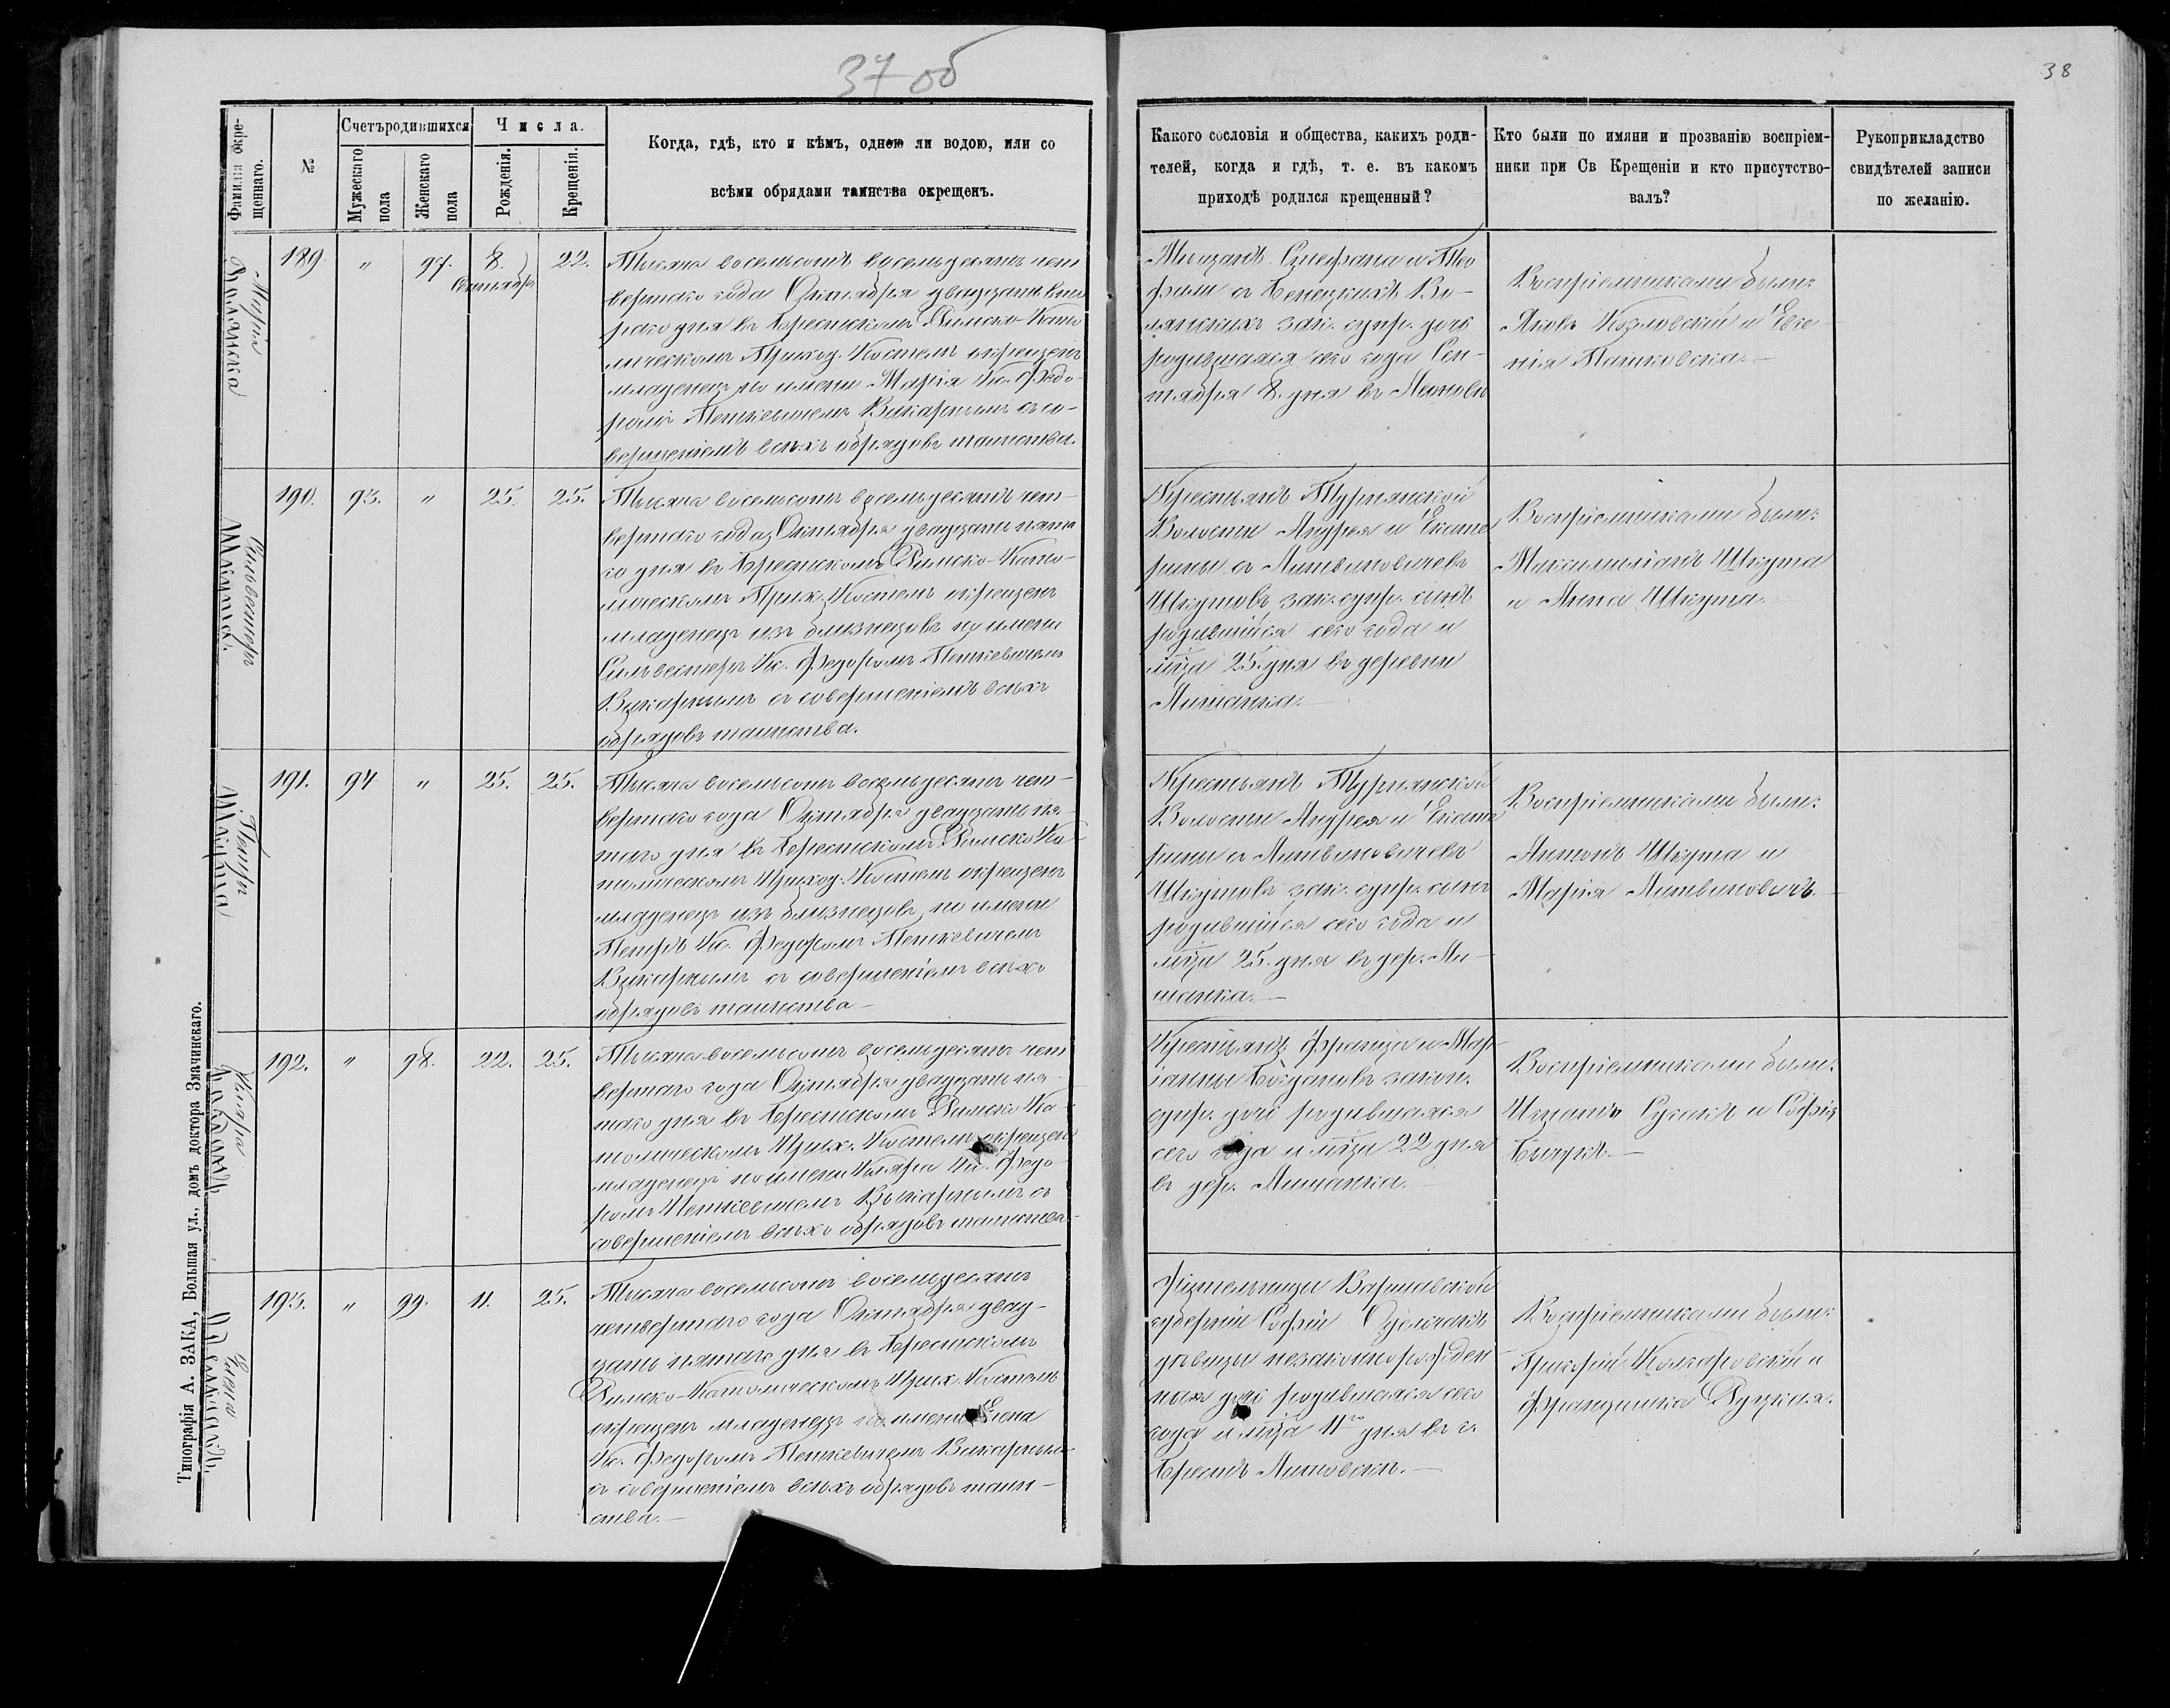 37 об
38
Фамилія окре-
щеннаго.
№
Счетъ родившихся
Мужескаго
пола
Женскаго
пола
Числа.
Рожденія.
Крещенія.
Когда, гдѣ, кто и кѣмъ, одною ли водою, или со
всѣми обрядами таинства окрещенъ.
Какого сословія и общества, какихъ роди-
телей, когда и гдѣ, т. е. въ какомъ
приходѣ родился крещенный?
Кто были по имяни и прозванію воспріем-
ники при Св Крещеніи и кто присутство-
валъ?
Рукоприкладство
свидѣтелей записи
по желанію.
Марія
189.
"
97.
8.
Сентября
22.
Тысяча восемьсотъ восемьдесятъ чет
вертаго года Октября двадцать вто
раго дня въ Брестскомъ Римско-Като
лическомъ Приход. Костелѣ окрещенъ
младенецъ по имени Марія Кс. Федо-
ромъ Петкевичемъ Викарнымъ съ со-
вершеніемъ всѣхъ обрядовъ таинства.
Мѣщанъ Стефана и Тео
филіи съ
зак. супр. дочь
родившаяся сего года Сен-
тября 8. дня въ
Воспріемниками были:
Яковъ Козловскій и Евге
нія
Сильвестеръ
Шкута.
190.
93.
"
25.
25.
Тысяча восемьсотъ восемьдесятъ чет-
вертаго года Октября двадцать пята
го дня въ Брестскомъ Римско-Като-
лическомъ Прих. Костелѣ окрещенъ
младенецъ изъ близнецовъ по имени
Сильвестеръ Кс. Федоромъ Петкевичемъ
Викарнымъ съ совершеніемъ всѣхъ
обрядовъ таинства.
Крестьянъ Турнянской
Волости Андрея и Екате
рины съ Литвиновичевъ
Шкутовъ зак. супр. сынъ
родившійся сего года и
мца 25. дня въ деревни
Лищанка.
Воспріемниками были:
Максимиліанъ Шкута
и Анна Шкута.
Петръ
Шкута
191.
94
"
25.
25.
Тысяча восемьсотъ восемьдесятъ чет-
вертаго года Октября двадцать пя-
таго дня въ Брестскомъ Римско Ка
толическомъ Приход. Костелѣ окрещенъ
младенецъ изъ близнецовъ, по имени
Петръ Кс. Федоромъ Петкевичемъ
Викарнымъ съ совершеніемъ всѣхъ
обрядовъ таинства-
Крестьянъ Турнянской
Волости Андрея и Екате
рины съ Литвиновичевъ
Шкутовъ зак. супр. сынъ
родившійся сего года и
мца 25. дня въ дер. Ли-
щанка.-
Воспріемниками были:
Антонъ Шкута и
Марія Литвиновичъ.
Кляра
192.
"
98.
22.
25.
Тысяча восемьсотъ восемьдесятъ чет
вертаго года Октября двадцать пя-
таго дня въ Брестскомъ Римско Ка
толическомъ Прих. Костелѣ окрещенъ
младенецъ по имени Кляра Кс. Федо-
ромъ Петкевичемъ Викарнымъ съ
совершеніемъ всѣхъ обрядовъ таинства.
Крестьянъ Франца и Мар
іанны закон.
супр. дочь родившаяся
сего года и мца 22 дня
въ дер. Лищанка.
Воспріемниками были:
и Софія
Елена
193.
"
99.
11.
25.
Тысяча восемьсотъ восемьдесятъ
четвертаго года Октября двад-
цать пятаго дня въ Брестскомъ
Римско-Католическомъ Прих. Костелѣ
окрещенъ младенецъ по имени Елена
Кс. Федоромъ Петкевичемъ Викарнымъ
съ совершеніемъ всѣхъ обрядовъ таин-
ства.-
Жительницы Варшавской
губерніи Софіи
дѣвицы незаконнорожден
ная дочь родившаяся сего
года и мца 11го дня въ г.
Брестъ Литовскъ.-
Воспріемниками были:
Григорій и
Францишка
Типографія А. ЗАКА, Большая ул., домъ доктора Значинскаго.